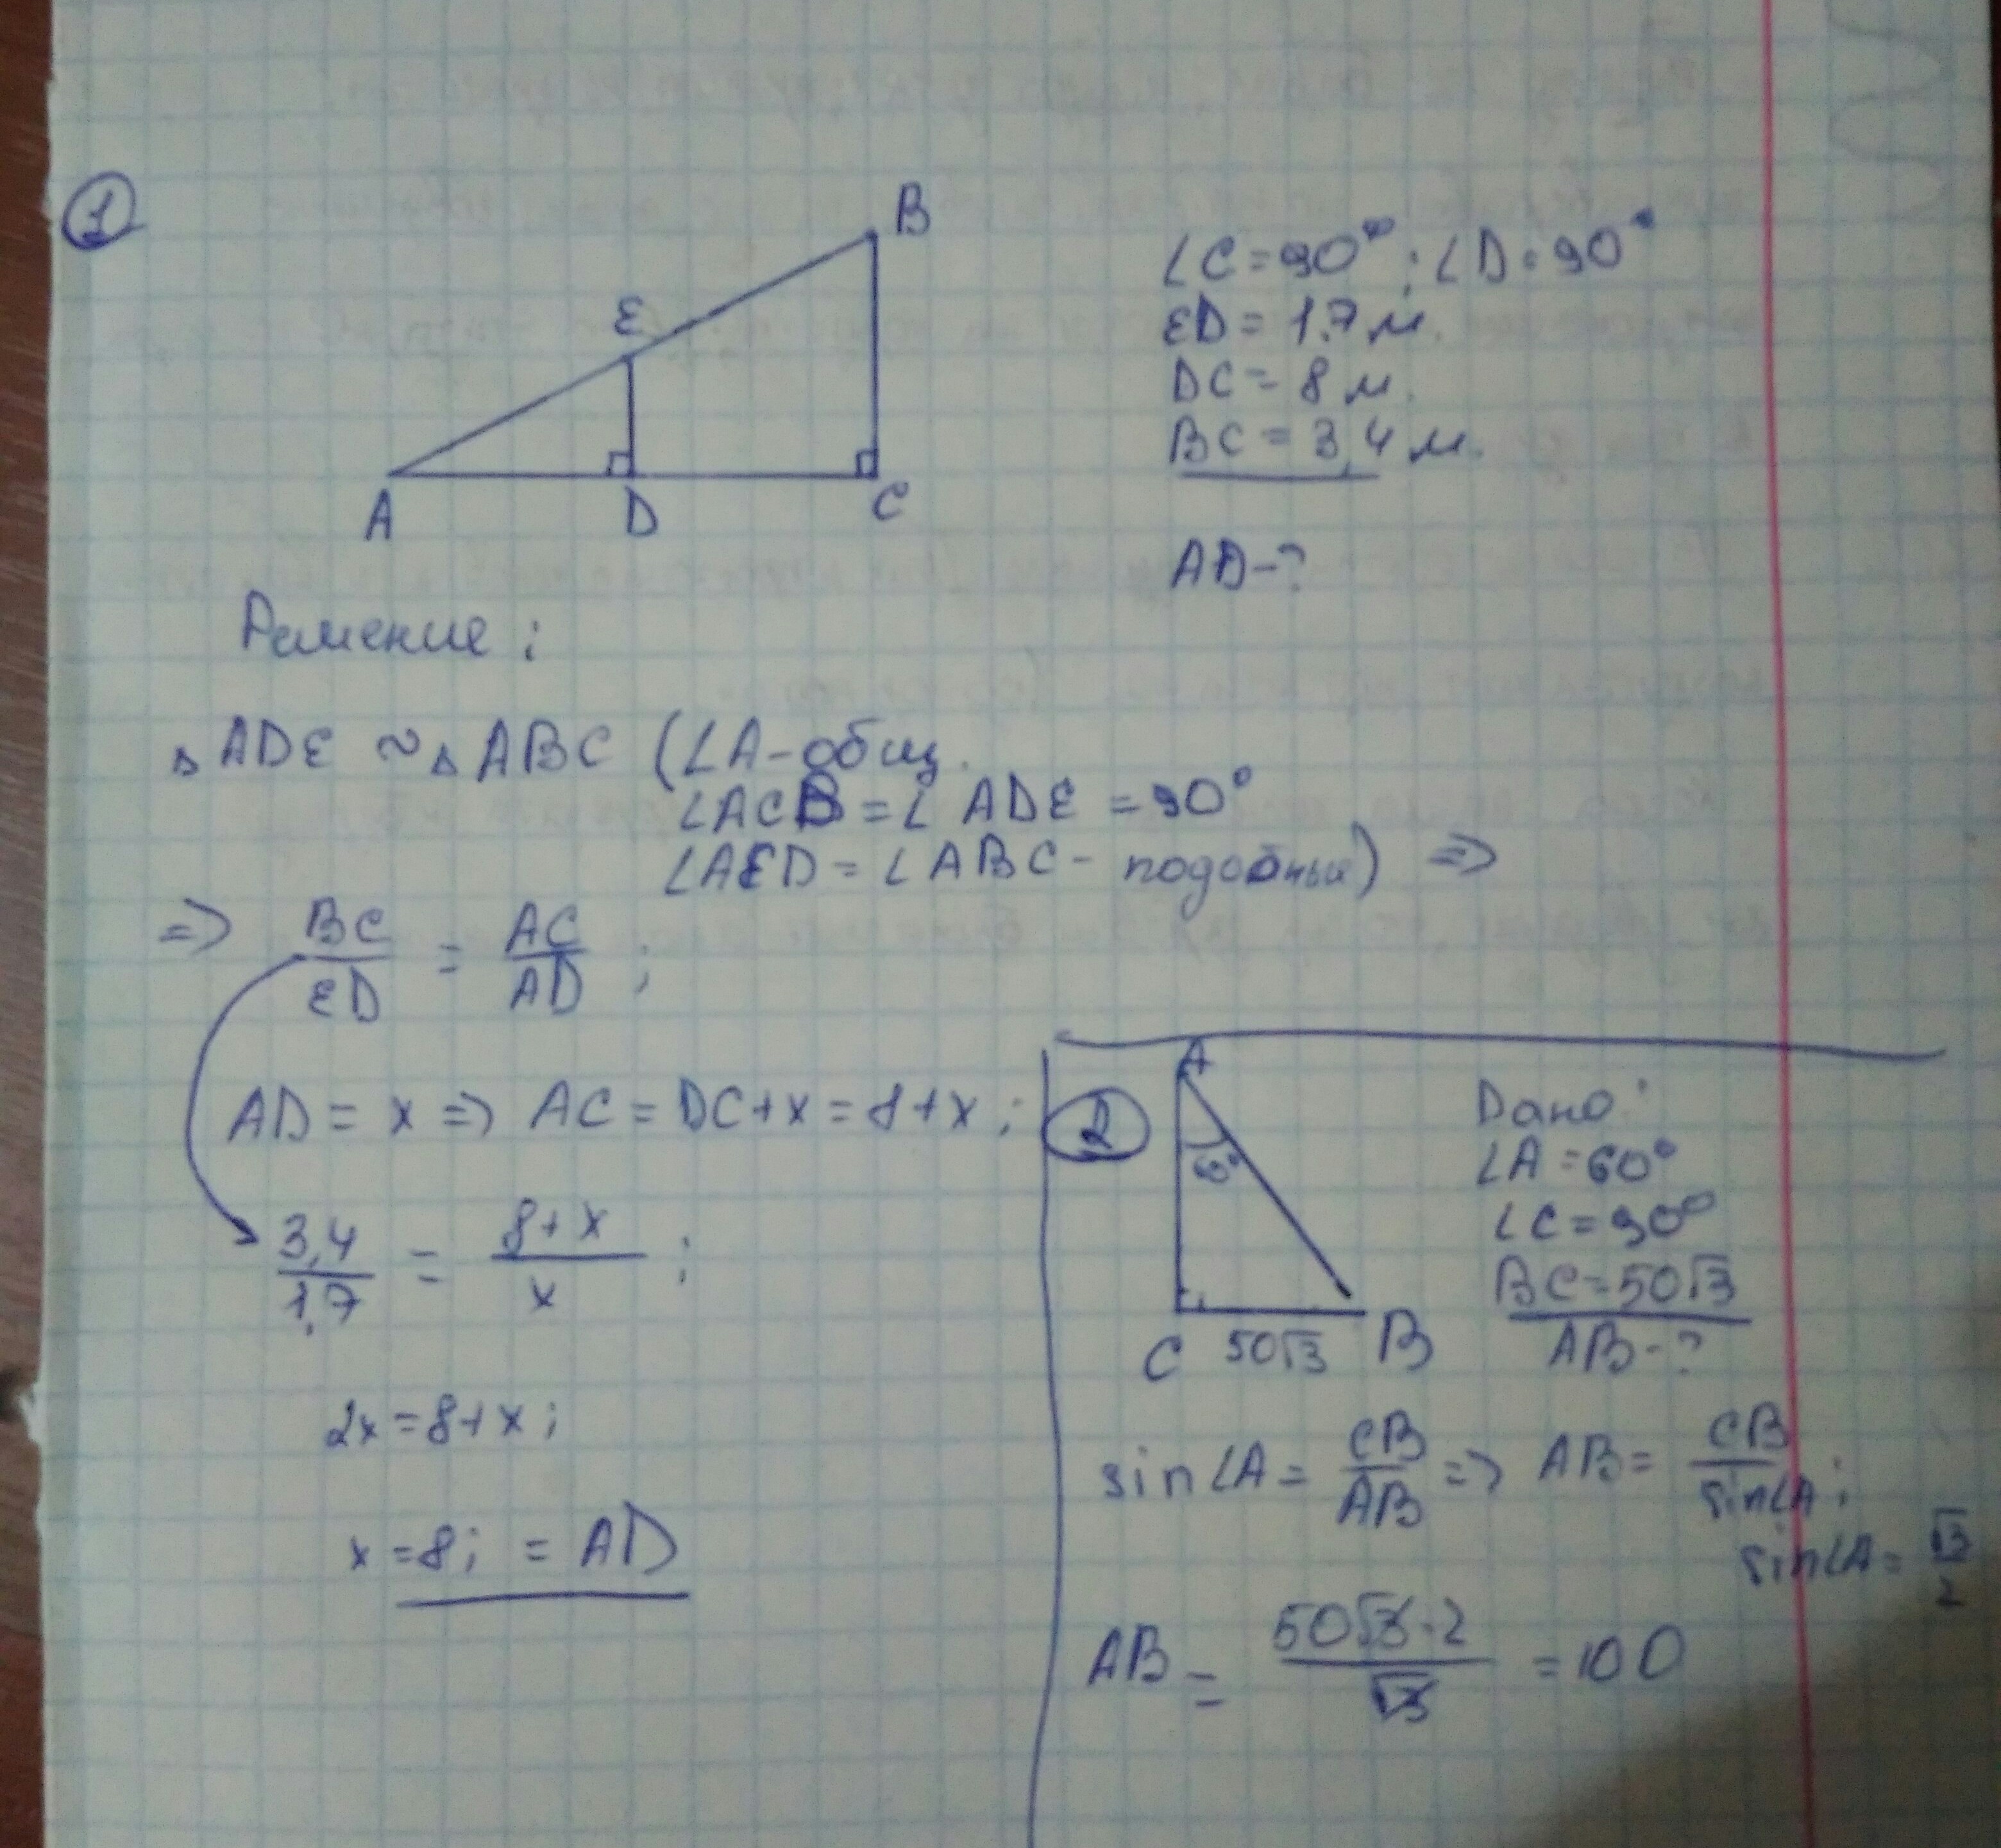 1
B
E
A
D
C
∠C = 90° ; ∠D = 90°
ED = 1.7 м.
DC = 8 м.
BC = 3,4 м.
AD - ?
Решение :
△ ADE ~ △ ABC (∠A - общ.
∠ACB = ∠ADE = 90°
∠AED = ∠ABC - подобные) =>
=> BC/ED = AC/AD ;
AD = x => AC = DC + x = 8 + x ;
3,4/1,7 = 8+x/x ;
2x = 8 + x ;
x = 8 ; = AD
2
A
60°
C 50√3 B
Дано :
∠A = 60°
∠C = 90°
BC = 50√3
AB - ?
sin∠A = CB/AB => AB = CB/sin∠A ;
sin∠A = √3/2
AB = 50√3·2/√3 = 100